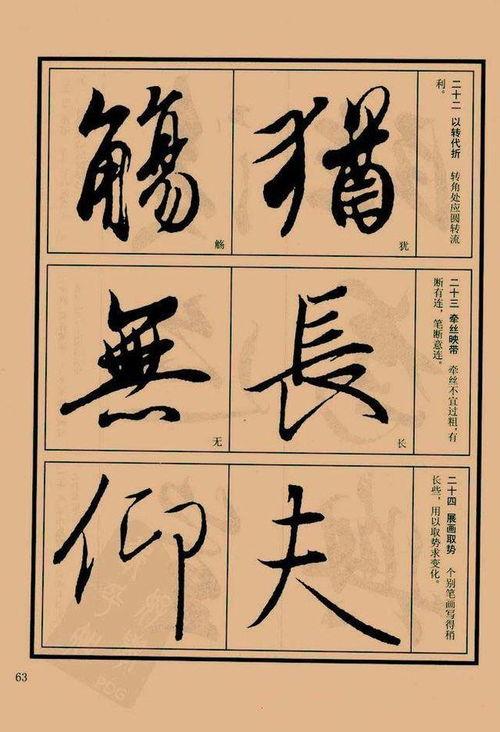 二十二 以转代折 转角处应圆转流
利。
猶
犹
觴
觞
二十三 牵丝映带 牵丝不宜过粗，有
断有连，笔断意连。
長
长
無
无
二十四 展画取势 个别笔画写得稍
长些，用以取势求变化。
夫
仰
63